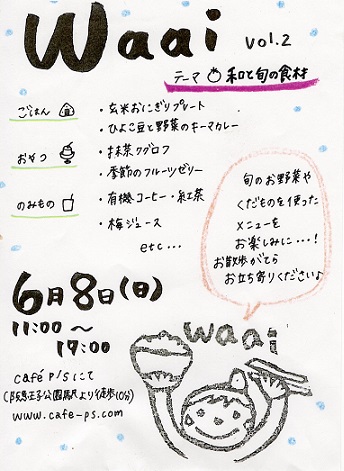 Waai vol.2
テーマ 和と旬の食材
ごはん
・玄米おにぎりプレート
・ひよこ豆と野菜のキーマカレー
おやつ
・抹茶クグロフ
・季節のフルーツゼリー
のみもの
・有機コーヒー・紅茶
・梅ジュース
etc...
旬のお野菜や
くだものを使った
メニューを
お楽しみに...!
お散歩がてら
お立ち寄りください♪
6月8日(日)
11:00〜
17:00
café P/S にて
(阪急王子公園駅より徒歩10分)
www.cafe-ps.com
waai